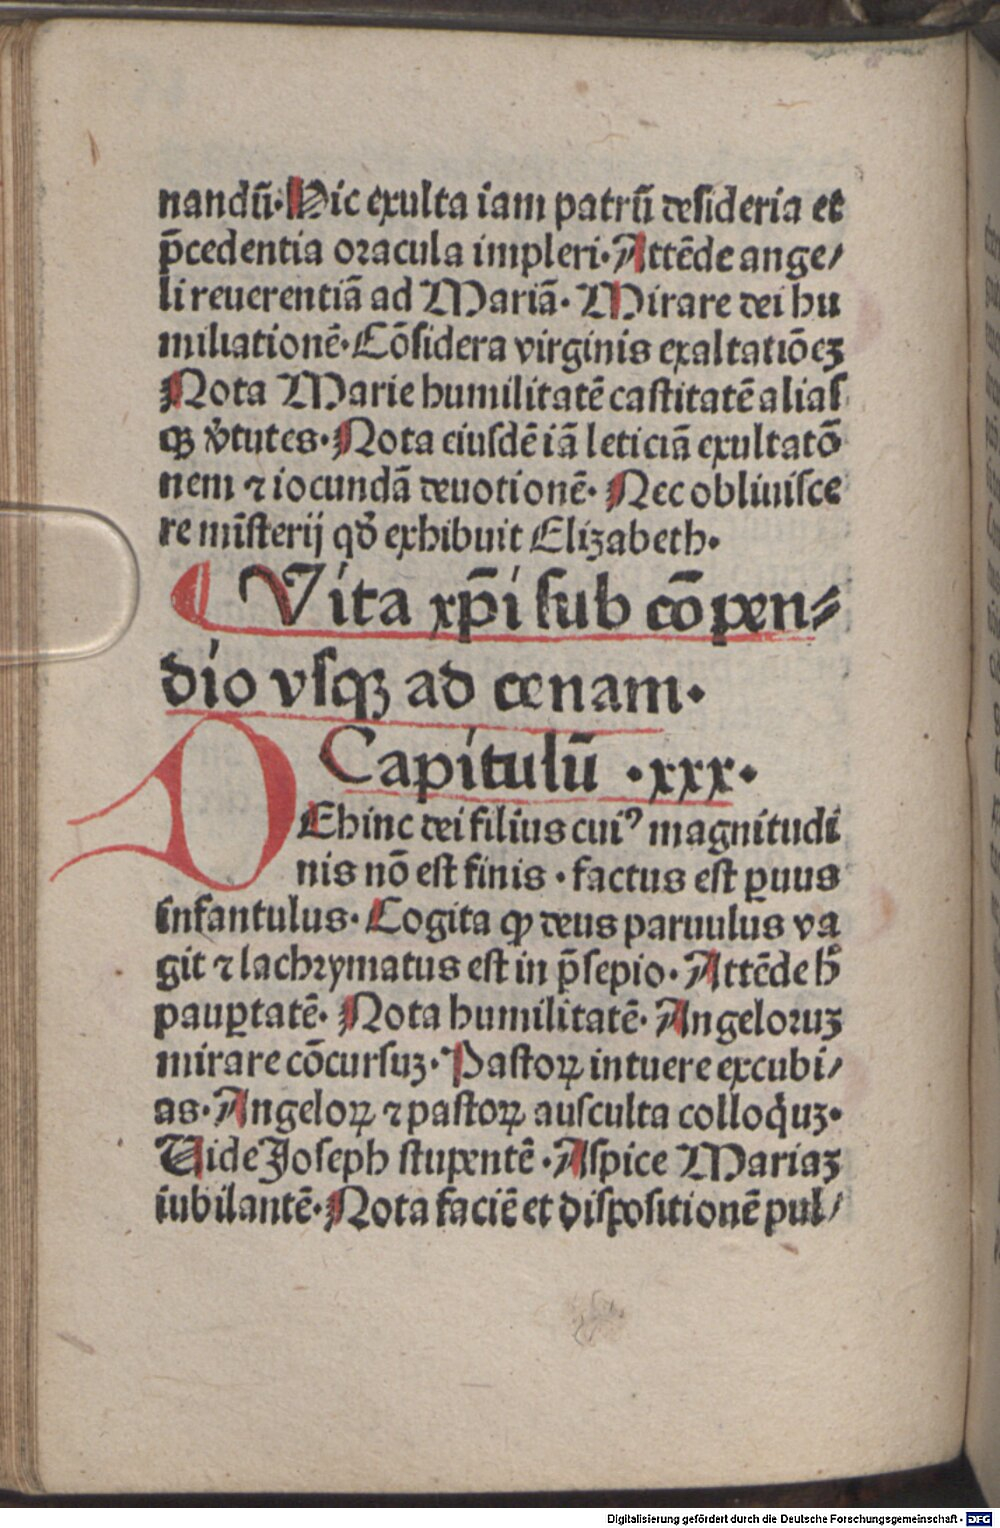 nandū. Hic exulta iam patrū desideria et
p̄cedentia oracula impleri. Attēde ange/
li reuerentiā ad Mariā. Mirare dei hu
miliationē. Cōsidera virginis exaltatiōeꝫ
Nota Marie humilitatē castitatē alias
qꝫ v̓tutes. Nota eiusdē iā leticiā exultatō
nem ⁊ iocundā deuotionē. Nec obliuisce
re mīsterij qđ exhibuit Elizabeth.
¶ Vita xp̄i sub cōpen⸗
dio vsqꝫ ad cenam.
Capitulū .xxx.
DEhinc dei filius cuiꝰ magnitudi
nis nō est finis . factus est ꝑuus
infantulus. Cogita ꝙ deus paruulus va
git ⁊ lachrymatus est in p̄sepio. Attēde hͦ
pauꝑtatē. Nota humilitatē. Angeloruꝫ
mirare cōcursuꝫ. Pastoꝝ intuere excubi/
as. Angeloꝝ ⁊ pastoꝝ ausculta colloq̇uꝫ.
Uide Joseph stupentē. Aspice Mariaꝫ
iubilantē. Nota faciē et dispositionē pul/
Digitalisierung gefördert durch die Deutsche Forschungsgemeinschaft - DFG